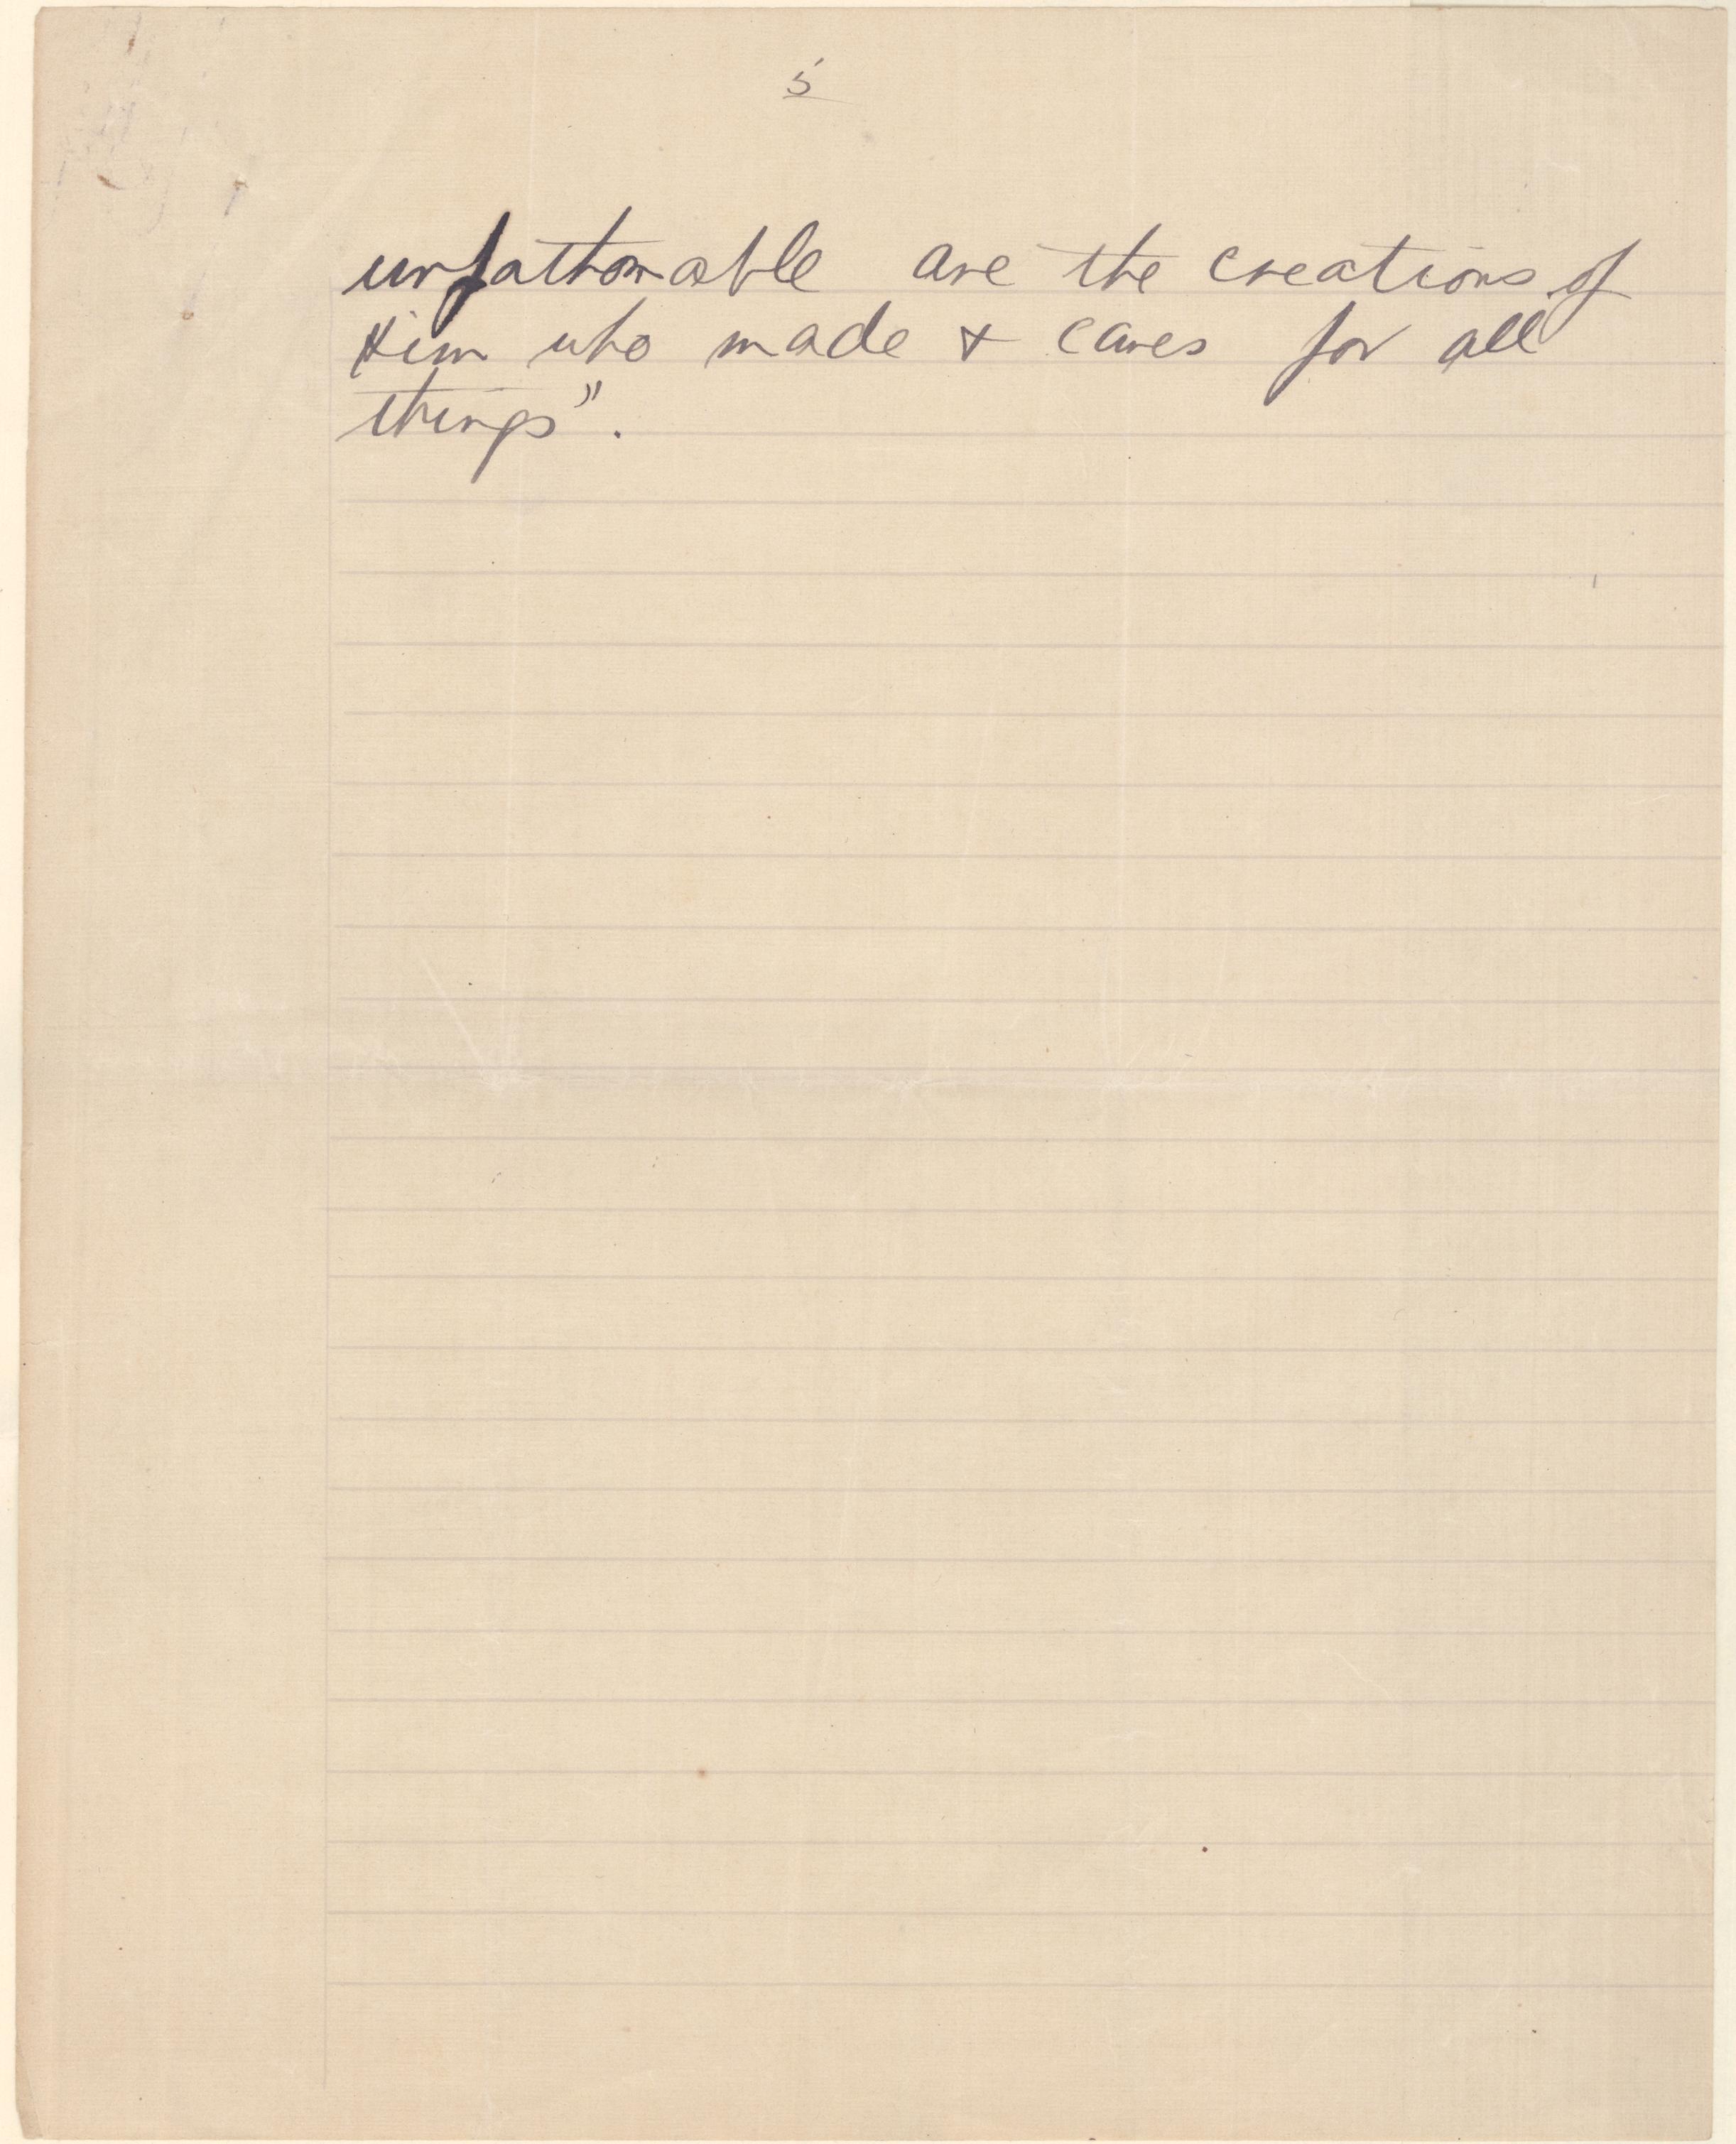 5
unfathomable are the creations of
Him who made & cares for all
things".